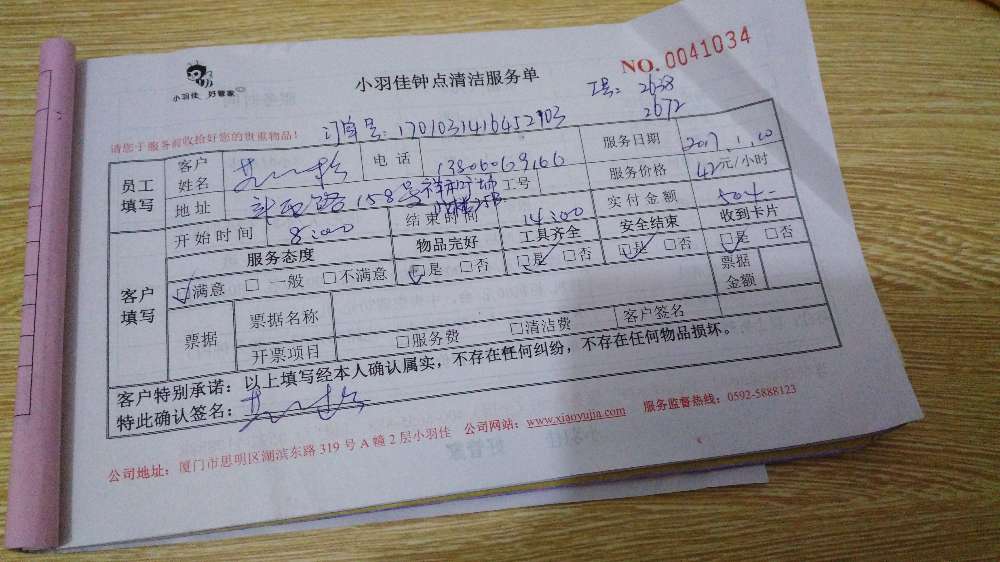 小羽佳 好管家
小羽佳钟点清洁服务单
NO. 0041034
工号: 2638
2672
请您于服务前收拾好您的贵重物品!
订单号: 1701031416452903
员工填写 客户姓名 电话 13806069166 服务日期 2017.1.10
地址 158号 工号 服务价格 42元/小时
开始时间 8:00 结束时间 14:00 实付金额 504-
客户填写 服务态度 物品完好 工具齐全 安全结束 收到卡片
☑满意 □ 一般 □不满意 ☑是 □否 ☑是 □否 ☑是 □否 ☑是 □否
票据 票据名称 票据金额
开票项目 □服务费 □清洁费 客户签名
客户特别承诺:以上填写经本人确认属实,不存在任何纠纷,不存在任何物品损坏。
特此确认签名:
公司地址:厦门市思明区湖滨东路 319 号 A 幢 2 层小羽佳 公司网站:www.xiaoyujia.com 服务监督热线:0592-5888123